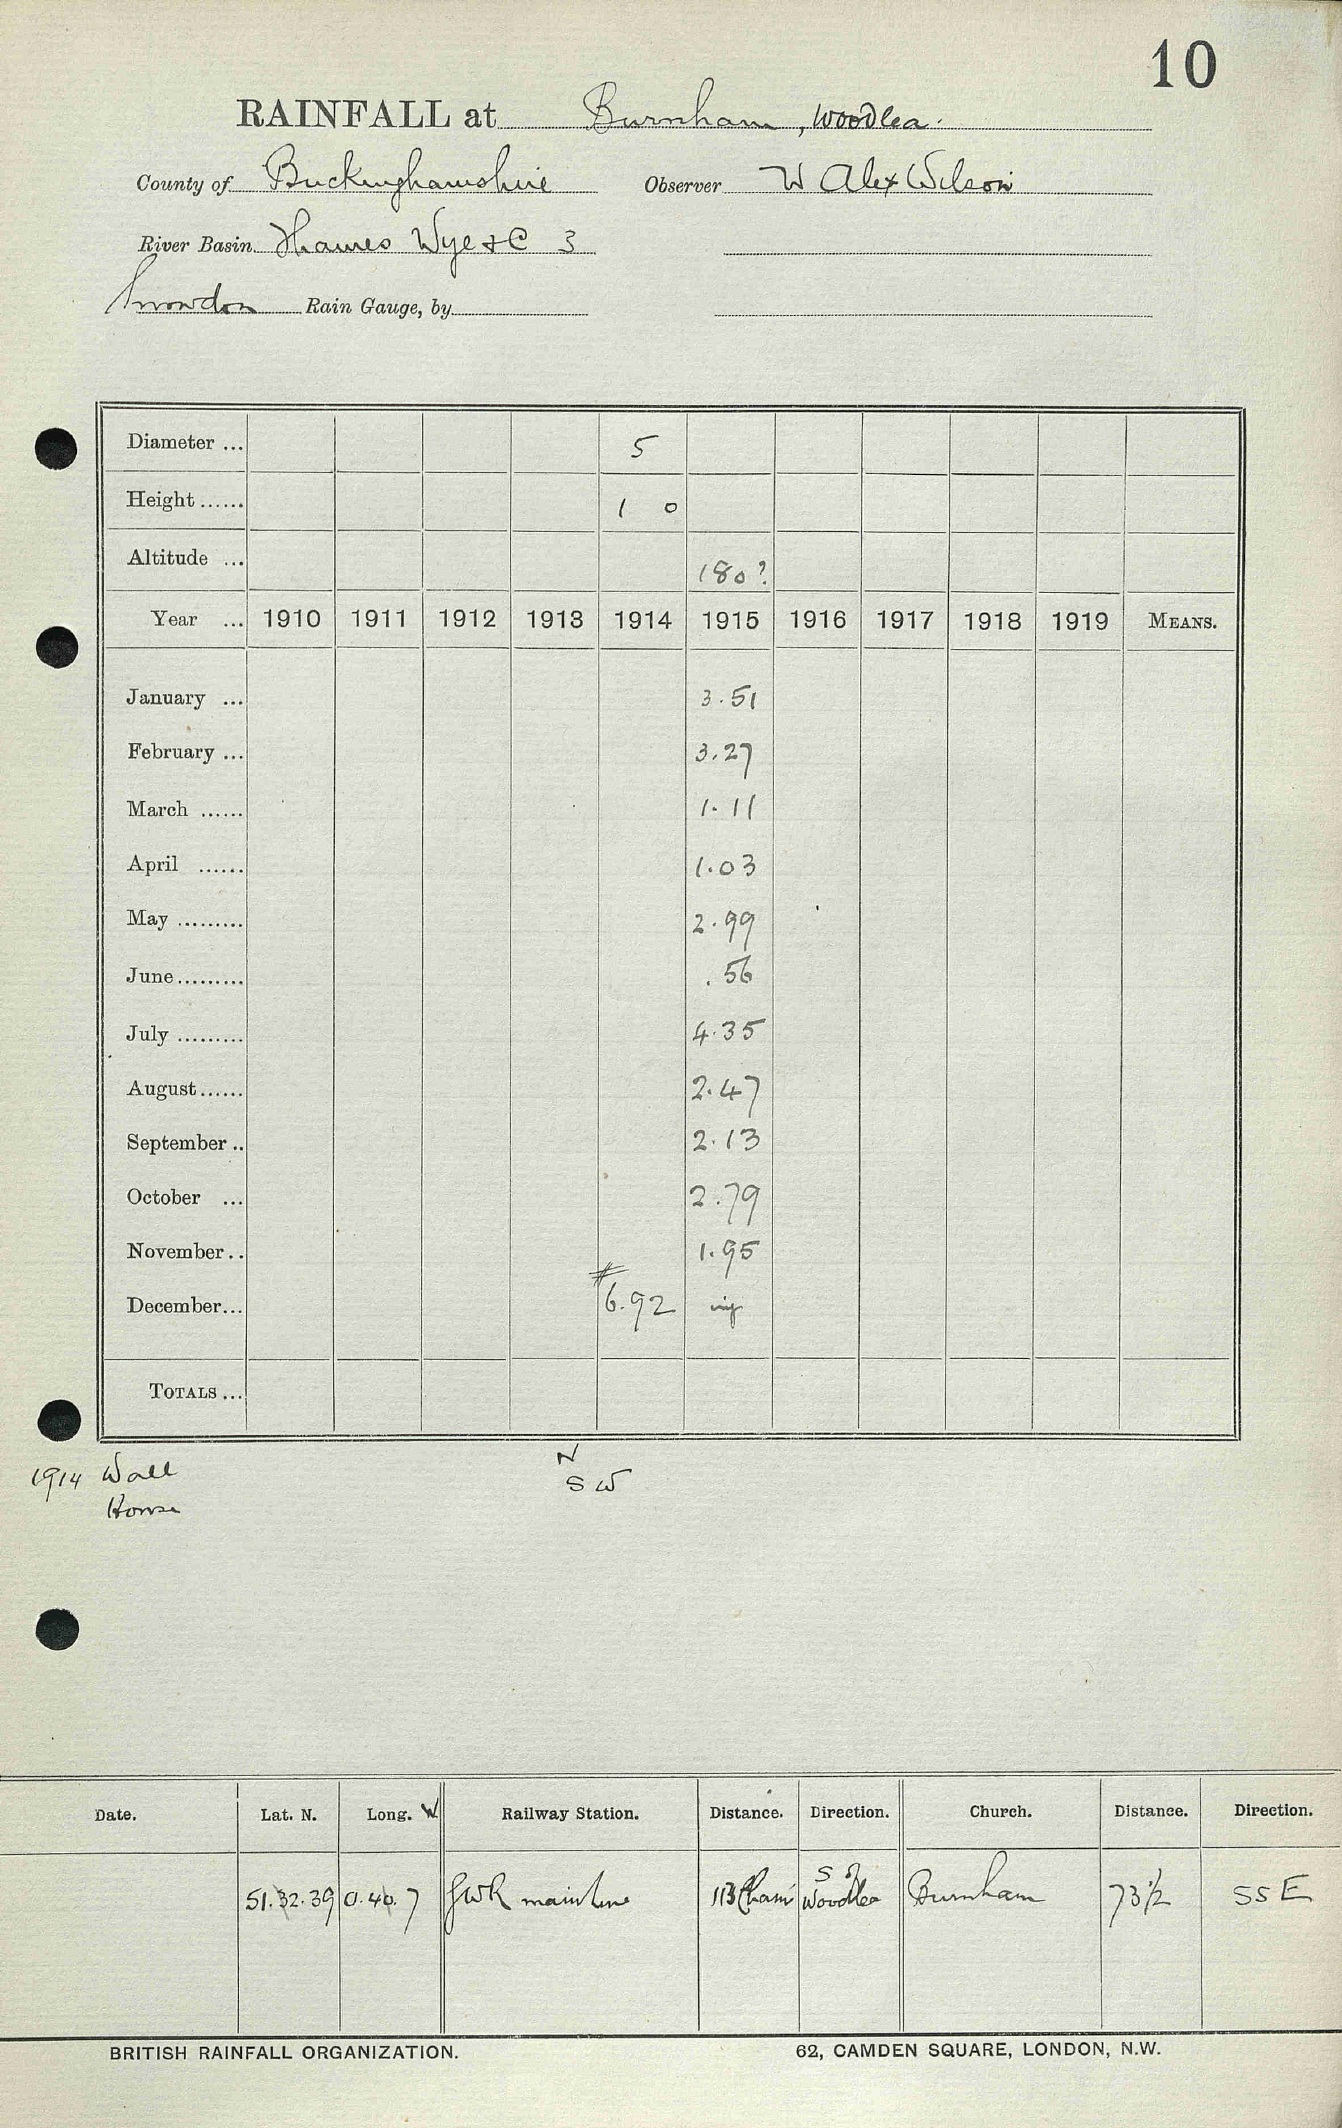 10
RAINFALL at Burnham, Woodlea.
County of Buckinghamshire Observer W Alex Wilson
River Basin Thames Wye &c 3
Snowdon Rain Gauge, by
Diameter ... 5
Height ...... 1 0
Altitude ... 180?
Year ... 1910 1911 1912 1913 1914 1915 1916 1917 1918 1919 MEANS.
January ... 3.51
February ... 3.27
March ...... 1.11
April ...... 1.03
May ......... 2.99
June ......... .56
July ......... 4.35
August ...... 2.47
September .. 2.13
October ... 2.79
November .. 1.95
#
December ... 6.92
TOTALS ...
1914 Wall N
House SW
Date. Lat. N. Long. W Railway Station. Distance. Direction. Church. Distance. Direction.
51.32.39 0.40.7 GWR main line 113 Chains S of Woodlea Burnham 73½ SSE
BRITISH RAINFALL ORGANIZATION. 62, CAMDEN SQUARE, LONDON, N.W.